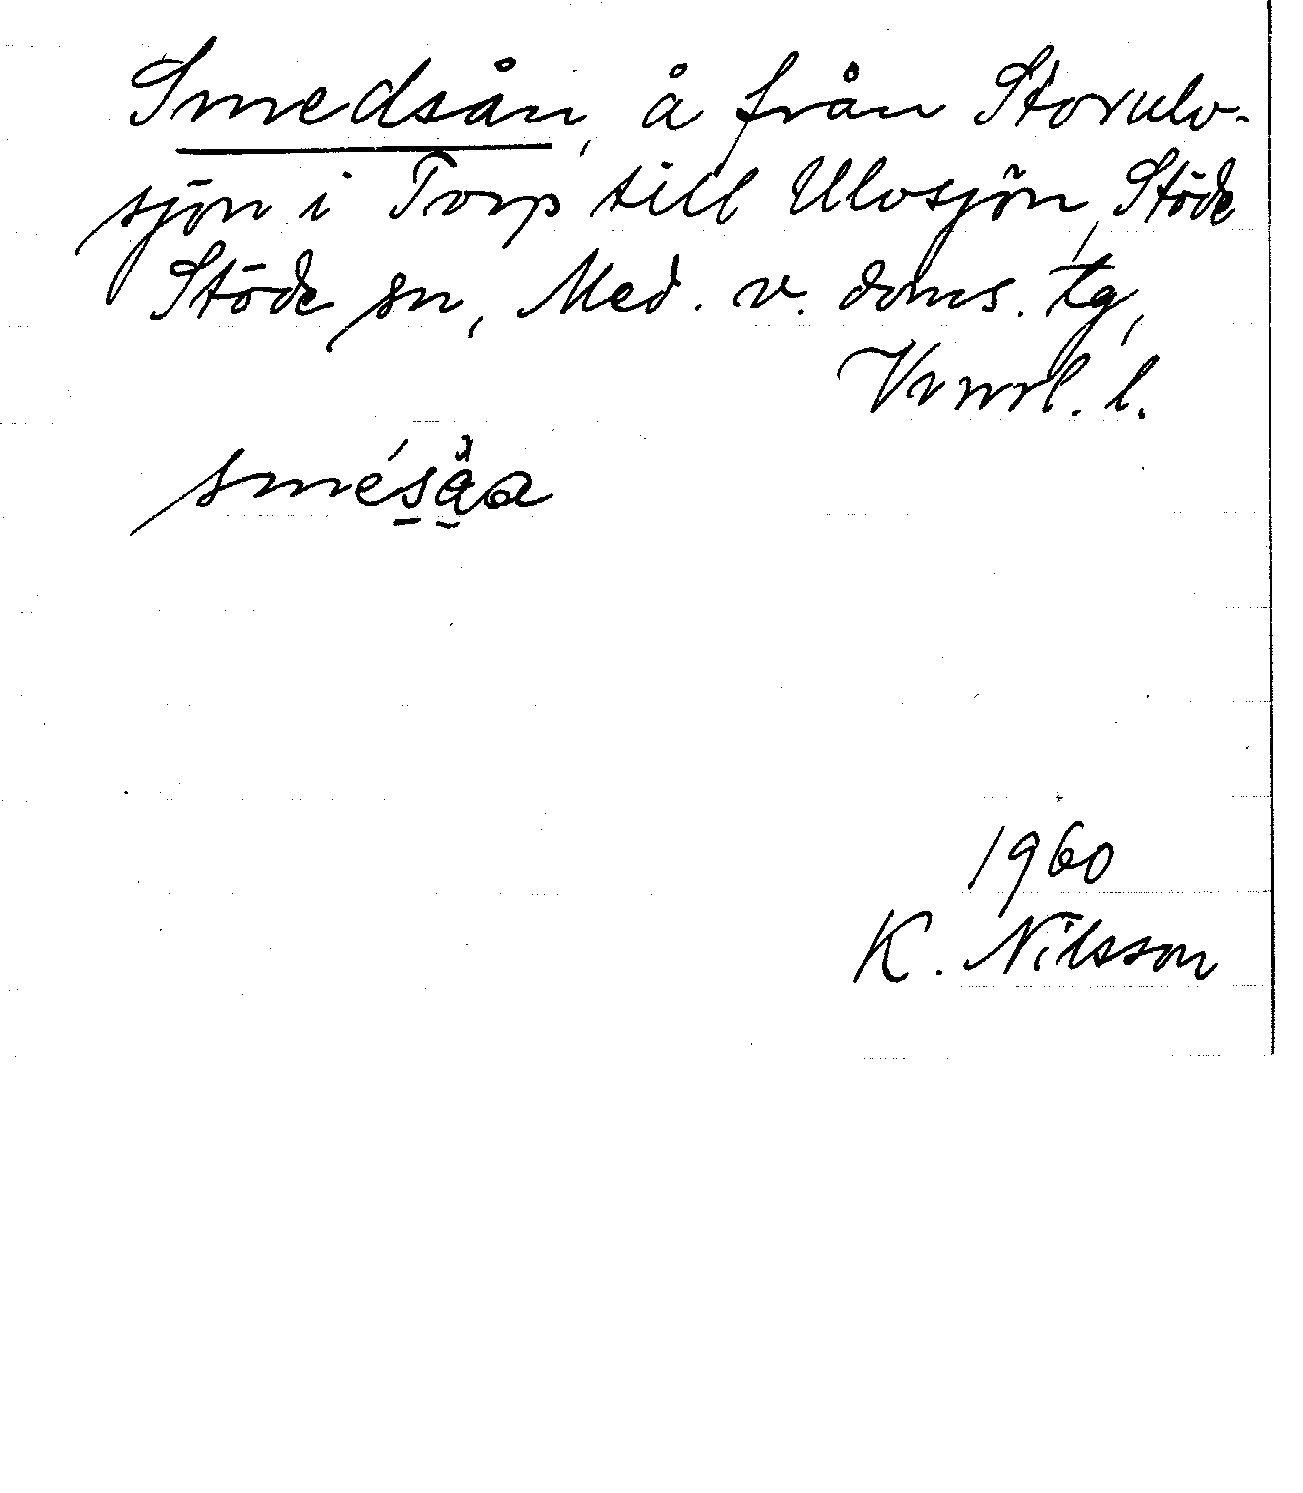 Smedsån, å från Storulv-
sjön i Torp till Ulvsjön, Stöde
Stöde sn, Med. v. doms. tg,
Vnrl. l.
1960
K. Nilsson